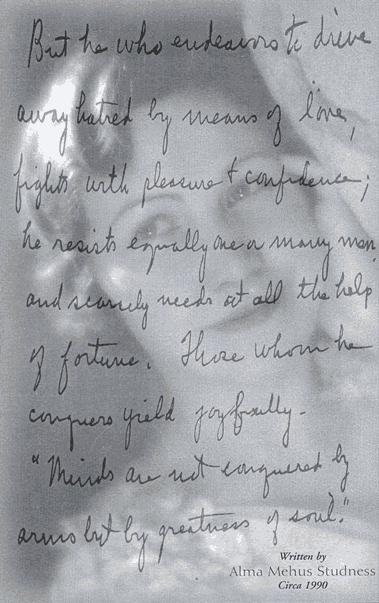 But he who endeavors to drive
away hatred by means of love,
fights with pleasure & confidence;
he resists equally one or many men,
and scarcely needs at all the help
of fortune. Those whom he
conquers yield joyfully-
"Minds are not conquered by
arms but by greatness of soul."
Written by
Alma Mehus Studness
Circa 1990